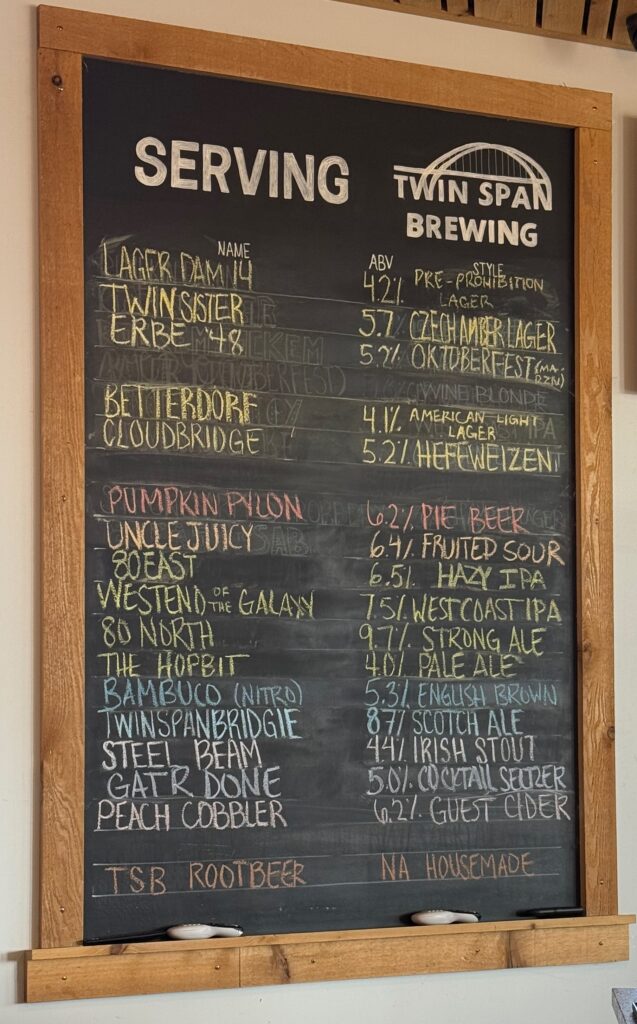 SERVING
TWIN SPAN
BREWING
NAME ABV STYLE
LAGER DAM 14 4.2% PRE-PROHIBITION
LAGER
TWIN SISTER 5.7% CZECH AMBER LAGER
ERBE '48 5.2% OKTOBERFEST (MA-
RZN)
BETTERDORF 4.1% AMERICAN-LIGHT
LAGER
CLOUDBRIDGE 5.2% HEFEWEIZEN
PUMPKIN PYLON 6.2% PIE BEER
UNCLE JUICY 6.4% FRUITED SOUR
80 EAST 6.5% HAZY IPA
WESTEND OF THE GALAXY 7.5% WEST COAST IPA
80 NORTH 9.7% STRONG ALE
THE HOPBIT 4.0% PALE ALE
BAMBUCO (NITRO) 5.3% ENGLISH BROWN
TWINSPANBRIDGIE 8.7% SCOTCH ALE
STEEL BEAM 4.4% IRISH STOUT
GATR DONE 5.0% COCKTAIL SELTZER
PEACH COBBLER 6.2% GUEST CIDER
TSB ROOTBEER NA HOUSEMADE